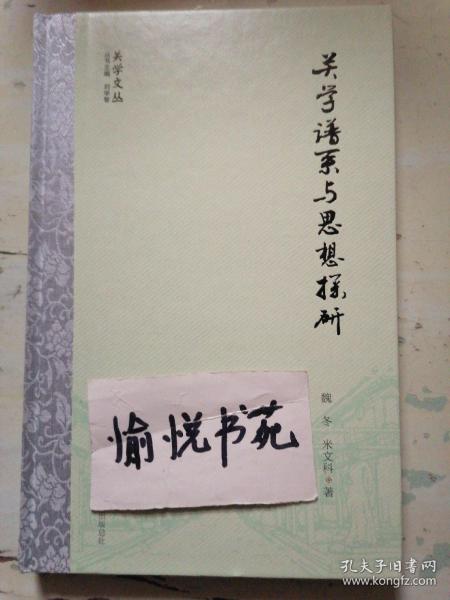 关学文丛
丛书主编 刘学智
关学谱系与思想探研
魏冬 米文科 著
愉悦书苑
出版总社
孔夫子旧书网
www.kongfz.com